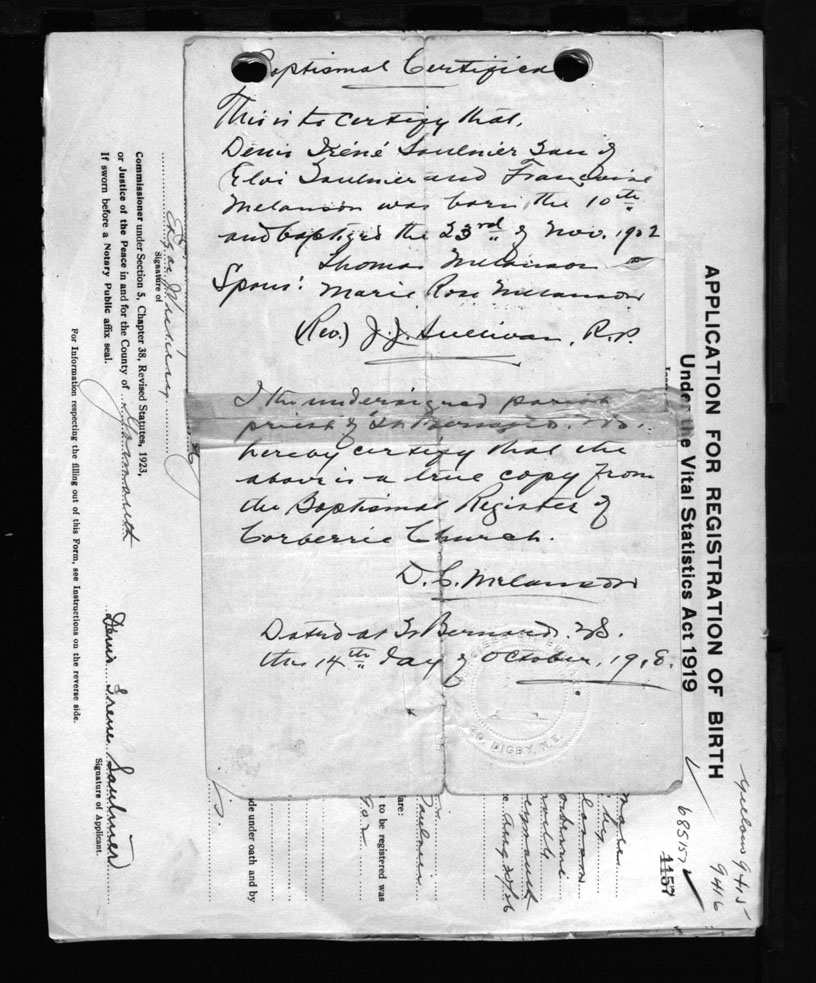 Baptismal Certificate
This is to certify that,
Denis Iréné Saulnier Son of
Eloi Saulnier and Françoise
Melanson was born, the 10th
and baptized the 23rd of Nov. 1902
Thomas Melanson
Spons: Marie Rose Melanson
(Rev.) J. J. Sullivan, R.P.
I the undersigned parish
priest of St Bernard, N.S.
hereby certify that the
above is a true copy from
the Baptismal Register of
Corberrie Church.
D. C. Melanson
Dated at St Bernard. N.S.
this 14th day of October, 1918.
CO. DIGBY, N.S.
APPLICATION FOR REGISTRATION OF BIRTH
Under the Vital Statistics Act 1919
9415
9416
685157
1157
Signature of
Commissioner under Section 5, Chapter 38, Revised Statutes, 1923,
or Justice of the Peace in and for the County of Yarmouth
If sworn before a Notary Public affix seal.
For Information respecting the filling out of this Form, see Instructions on the reverse side.
Denis Irene Saulnier
Signature of Applicant.
de under oath and by
to be registered was
902
lare:
Saulnier
Aug 27/26